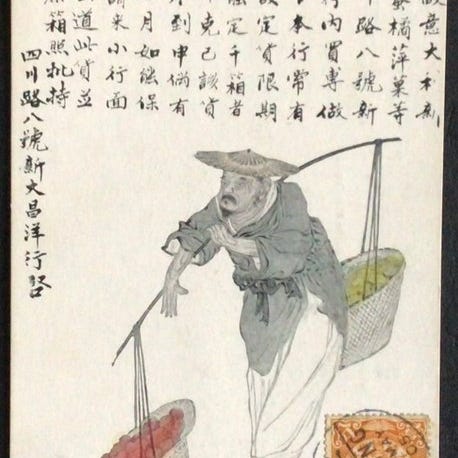 意大利新
蜜橘萍菓等
路八號新
行內買專做
本行常有
定貨限期
定千箱者
克己該貨
到申倘有
月如能保
來小行面
道此貨並
箱照批持
四川路八號新大昌洋行啓